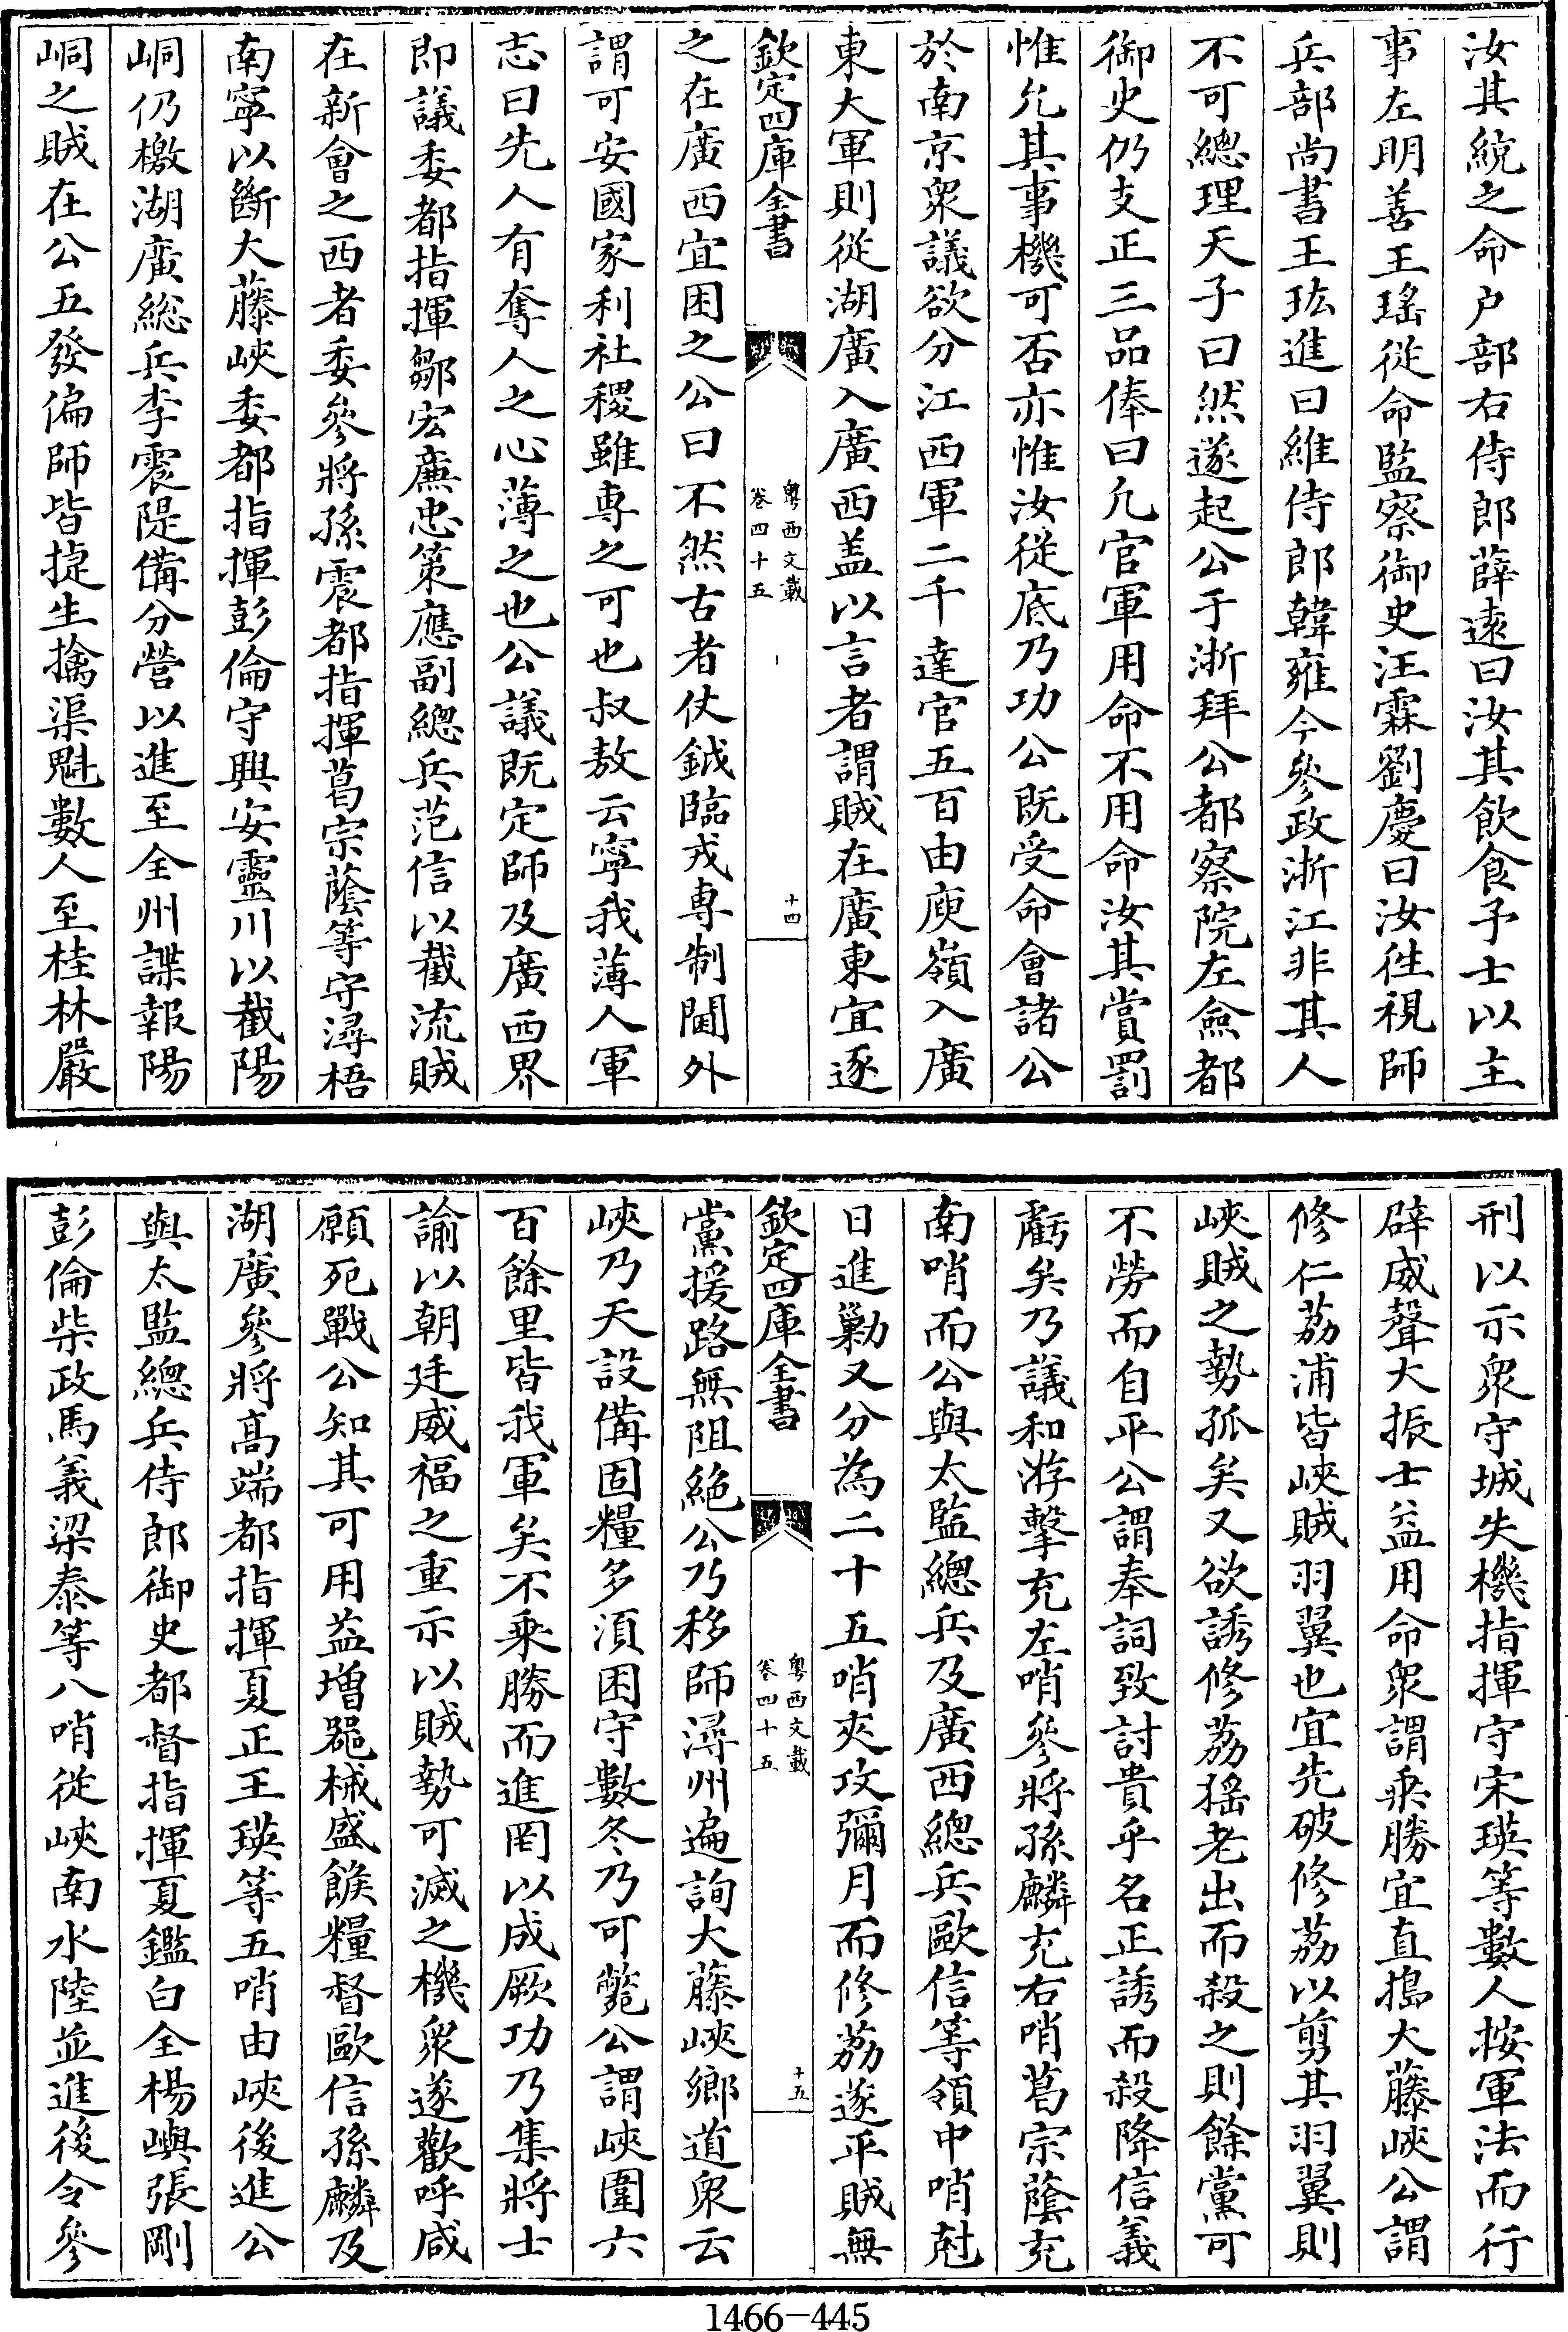 汝其統之命户部右侍郎薛逺曰汝其飲食予士以主
事左明善王瑤從命監察御史汪霖劉慶曰汝徃視師
兵部尚書王竑進曰維侍郎韓雍今參政浙江非其人
不可總理天子曰然遂起公于浙拜公都察院左僉都
御史仍支正三品俸曰凢官軍用命不用命汝其賞罰
惟允其事機可否亦惟汝從底乃功公既受命會諸公
於南京衆議欲分江西軍二千達官五百由庾嶺入廣
東大軍則從湖廣入廣西盖以言者謂賊在廣東宜逐
欽定四庫全書
粤西文載
卷四十五
十四
之在廣西宜困之公曰不然古者仗鉞臨戎専制閫外
謂可安國家利社稷雖専之可也叔敖云寧我薄人軍
志曰先人有奪人之心薄之也公議既定師及廣西界
即議委都指揮鄒宏亷忠策應副總兵范信以截流賊
在新會之西者委參將孫震都指揮葛宗蔭等守潯梧
南寧以斷大藤峽委都指揮彭倫守興安靈川以截陽
峒仍檄湖廣總兵李震隄備分營以進至全州諜報陽
峒之賊在公五發偏師皆㨗生擒渠魁數人至桂林嚴
刑以示衆守城失機指揮守宋瑛等數人按軍法而行
辟威聲大振士益用命衆謂乘勝宜直搗大藤峽公謂
修仁荔浦皆峽賊羽翼也宜先破修荔以剪其羽翼則
峽賊之勢孤矣又欲誘修荔猺老出而殺之則餘黨可
不勞而自平公謂奉詞致討貴乎名正誘而殺降信義
虧矣乃議和㳺擊充左哨參將孫麟充右哨葛宗蔭充
南哨而公與太監總兵及廣西總兵歐信等領中哨尅
日進勦又分為二十五哨夾攻彌月而修荔遂平賊無
欽定四庫全書
粤西文載
卷四十五
十五
黨援路無阻絶公乃移師潯州遍詢大藤峽鄉道衆云
峽乃天設備固糧多湏困守數冬乃可斃公謂峽圍六
百餘里皆我軍矣不乘勝而進罔以成厥功乃集將士
諭以朝廷威福之重示以賊勢可滅之機衆遂歡呼咸
願死戰公知其可用益增噐械盛餱糧督歐信孫麟及
湖廣參將髙端都指揮夏正王瑛等五哨由峽後進公
與太監總兵侍郎御史都督指揮夏鑑白全楊嶼張剛
彭倫柴政馬義梁泰等八哨從峽南水陸並進後令參
1466-445